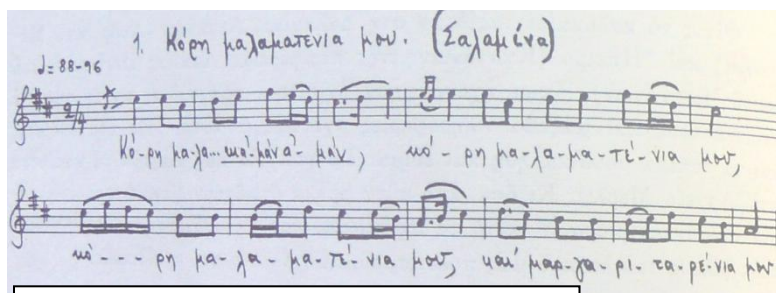 1. Κόρη μαλαματένια μου. (Σαλαμίνα)
♩= 88-96
2/4
Κό-ρη μα-λα... ἀμάν ἀ-μάν, κό-ρη μα-λα-μα-τέ-νια μου,
κό---ρη μα-λα-μα-τέ-νια μου, καί μαρ-γα-ρι-τα-ρέ-νια μου